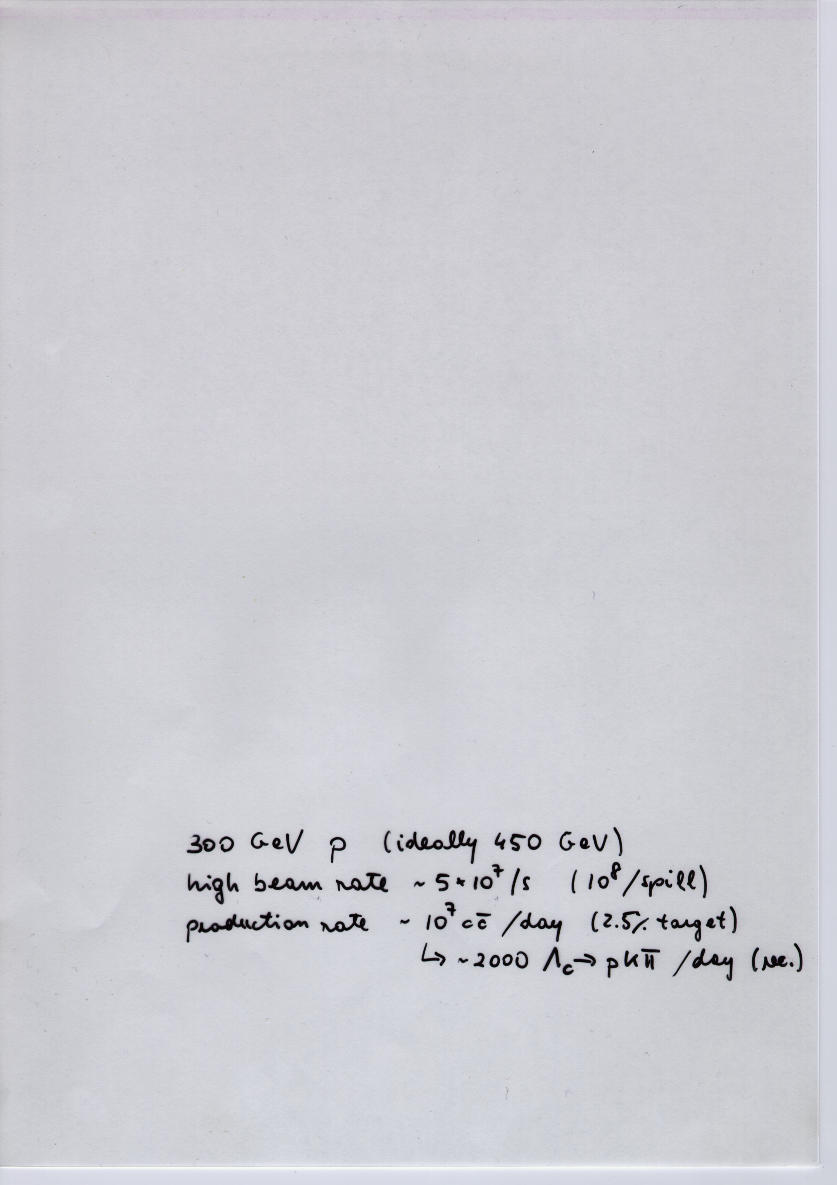 300 GeV p (ideally 450 GeV)
high beam rate ~ 5*10⁷/s (10⁸/spill)
production rate ~ 10⁷ cc̄ /day (2.5% target)
↳ ~2000 Λc→ pKπ /day (rec.)